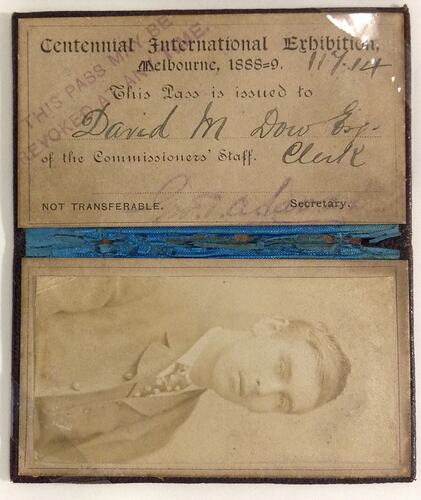 Centennial International Exhibition,
Melbourne, 1888=9. 117.14
This Pass is issued to
David M Dow Esq.
of the Commissioners' Staff. Clerk
NOT TRANSFERABLE. Secretary.
THIS PASS MAY BE
REVOKED AT ANY TIME.